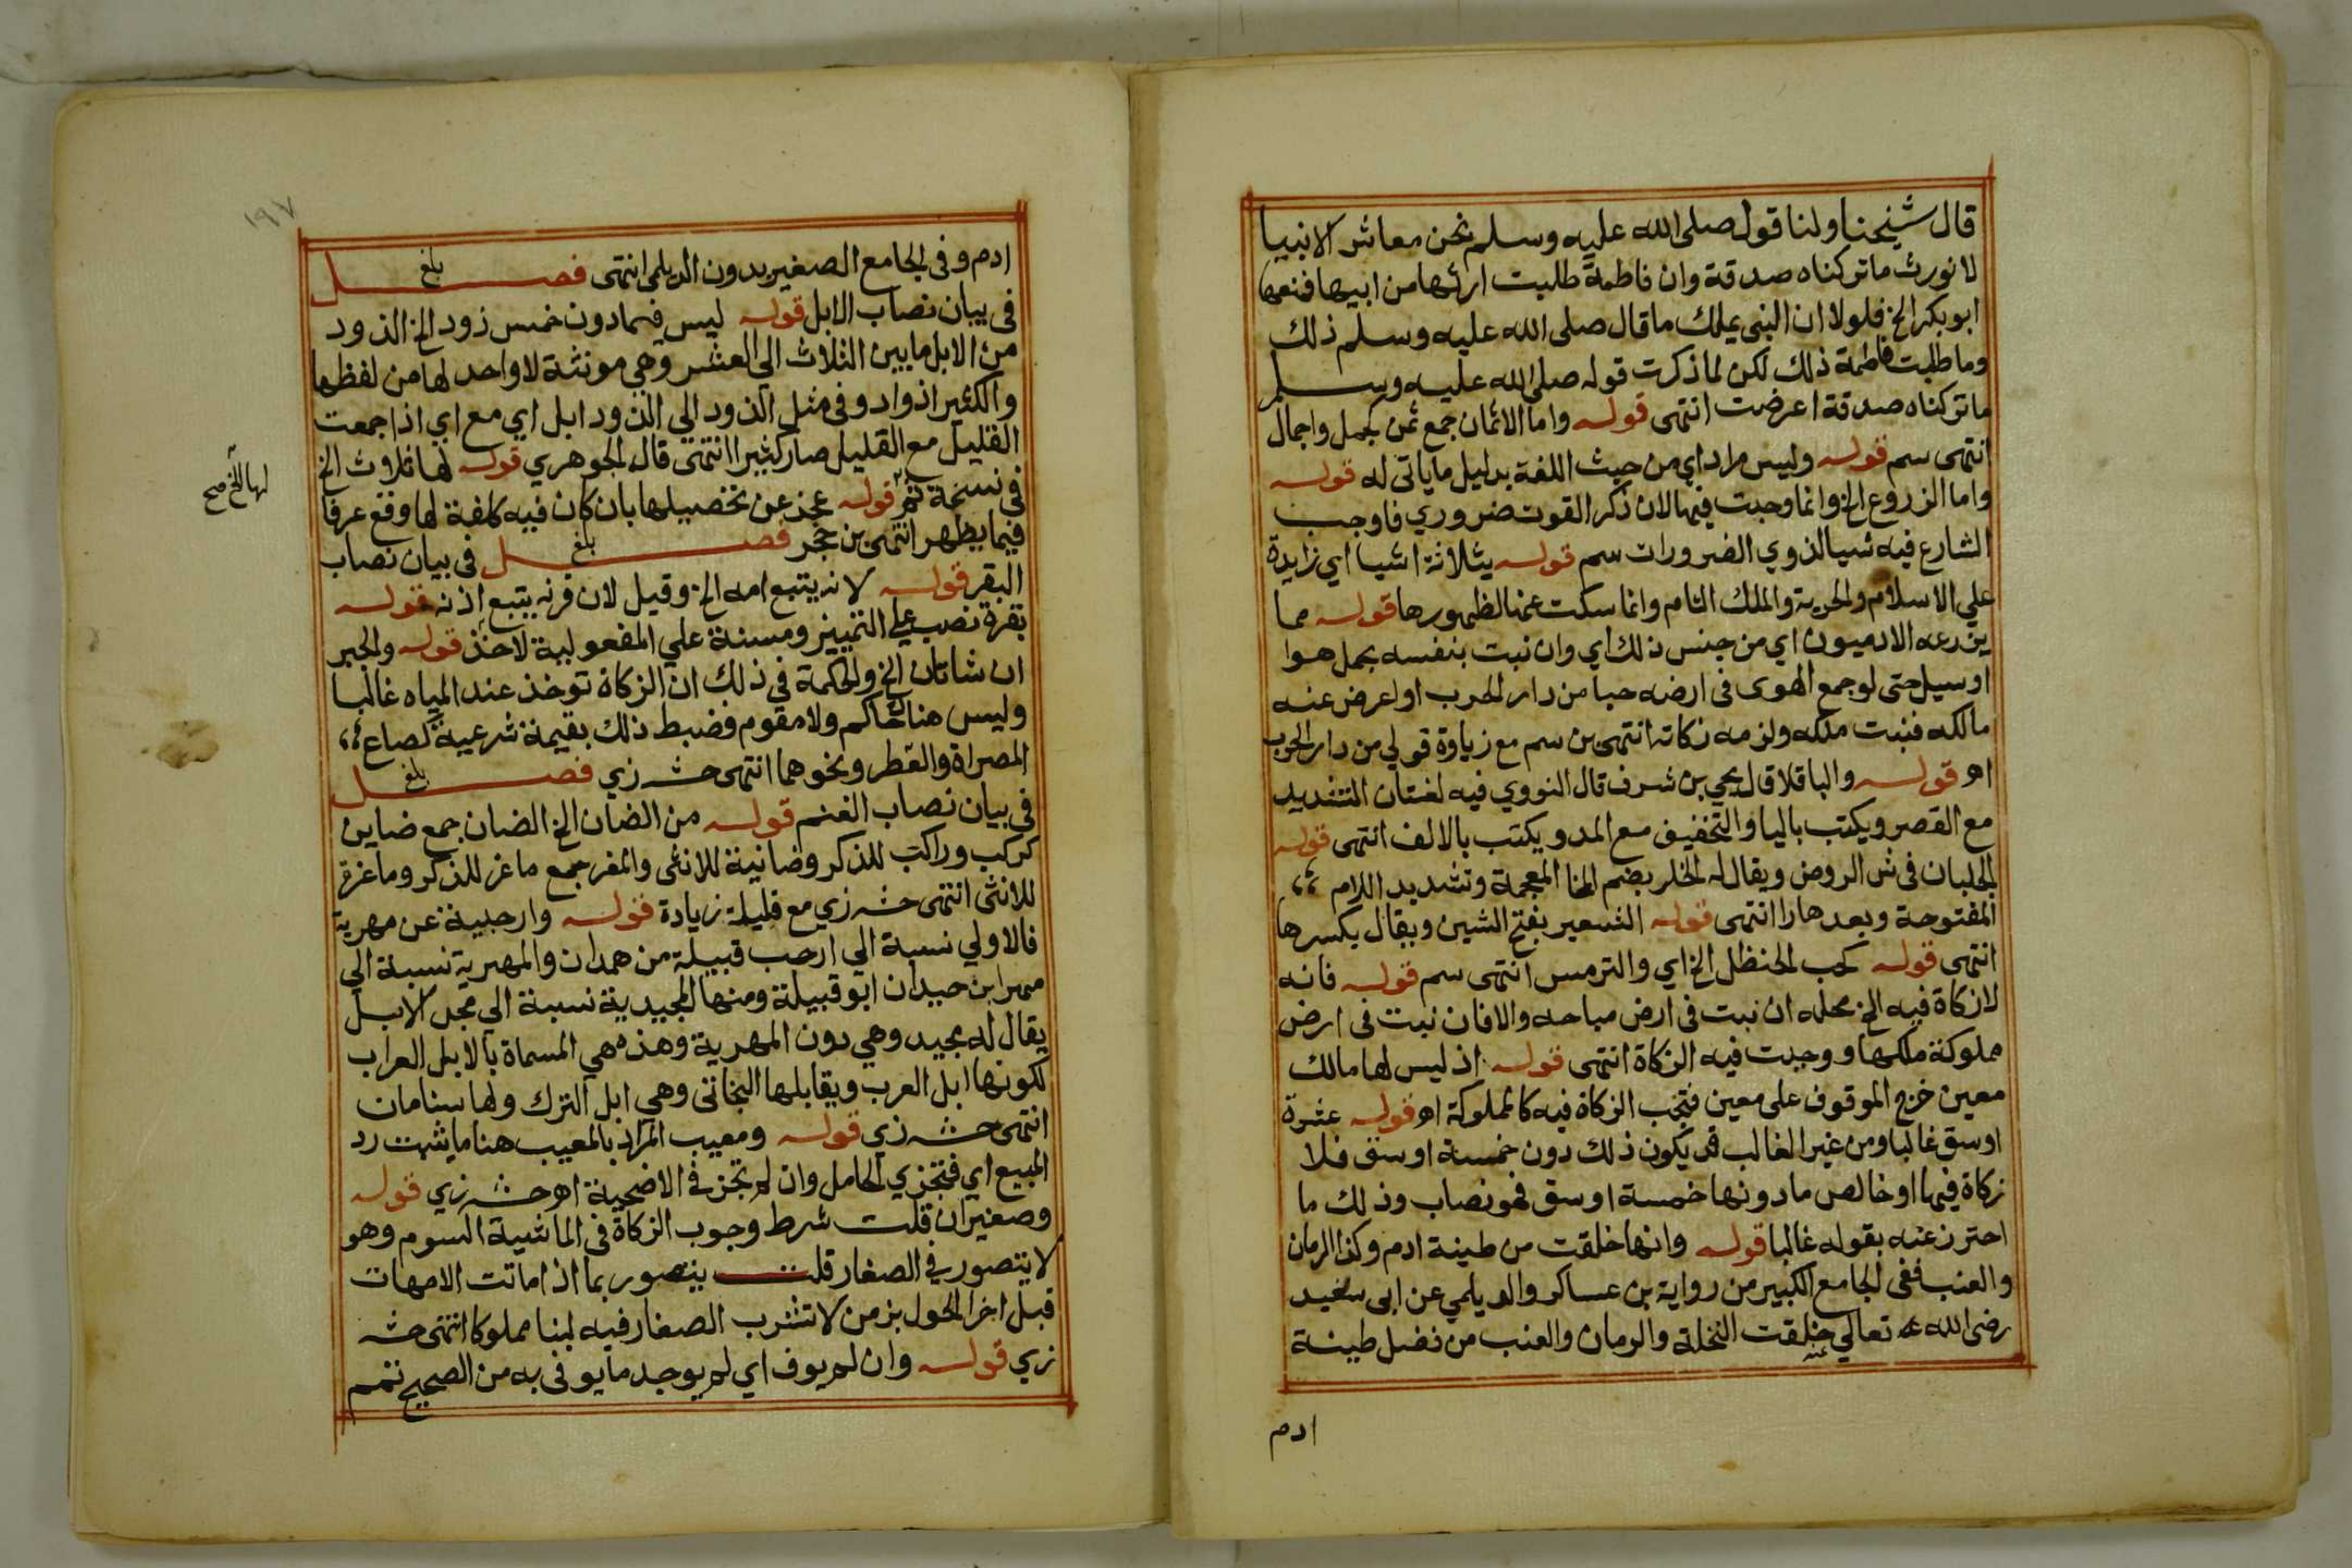 قال شيخنا ولنا قول صلى الله عليه وسلم نحن معاشر الانبيا
لا نورث ما تركناه صدقة وان فاطمة طلبت ارثها من ابيها فمنعها
ابو بكر الخ فلولا ان النبي يملك ما قال صلى الله عليه وسلم ذلك
وما طلبت فاطمة ذلك لكن لما ذكرت قوله صلى الله عليه وسلم
ما تركناه صدقة اعرضت انتهى قوله واما الاثمان جمع ثمن كجمل واجمال
انتهى سم قوله وليس مراد اي من حيث اللغة بدليل ما ياتي له قوله
واما الزروع الخ وانما وجبت فيها لان ذكر القوت ضروري فاوجب
الشارع فيه شيا لذوي الضرورات سم قوله بثلاثة اشيا اي زايدة
علي الاسلام والحرية والملك التام وانما سكت عنها لظهورها قوله مما
يزرعه الادميون اي من جنس ذلك اي وان نبت بنفسه بحمل هوا
او سيل حتى لو جمع الهوى في ارضه حبا من دار الحرب او اعرض عنه
مالكه فنبت ملكه ولزمه زكاته انتهى بن سم مع زياوة قولي من دار الحرب
اه قوله والباقلا قال يحي بن شرف قال النووي فيه لغتان التشديد
مع القصر ويكتب باليا والتخفيف مع المد ويكتب بالالف انتهى قوله
الجلبان في ش الروض ويقال له الخلر بضم الخا المعجمة وتشديد اللام
المفتوحة وبعدها را انتهى قوله الشعير بفتح الشين ويقال بكسرها
انتهى قوله كحب الحنظل الخ اي والترمس انتهى سم قوله فانه
لا زكاة فيه الخ محله ان نبت في ارض مباحه والا فان نبت في ارض
مملوكة ملكها ووجبت فيه الزكاة انتهى قوله اذ ليس لها مالك
معين خرج الموقوف على معين فتجب الزكاة فيه كالمملوكة اه قوله عشرة
اوسق غالبا ومن غير الغالب قد يكون ذلك دون خمسة اوسق فلا
زكاة فيها او خالص ما دونها خمسة اوسق فهو نصاب وذلك ما
احترز عنه بقوله غالبا قوله وانها خلقت من طينة ادم وكذا الرمان
والعنب ففي الجامع الكبير من رواية بن عساكر والديلمي عن ابى سعيد
رضي الله تعالي عنه خلقت النخلة والرمان والعنب من فضل طينة
ادم
١٩٧
ادم وفي الجامع الصغير بدون الديلمي انتهى فصل بلغ
في بيان نصاب الابل قوله ليس فيما دون خمس زود الخ الذود
من الابل ما بين الثلاث الي العشر وهي مونثة لا واحد لها من لفظها
والكثير اذواد وفي مثل الذود الي الذود ابل اي مع اي اذا جمعت
القليل مع القليل صار كثيرا انتهى قال الجوهري قوله لها ثلاث الخ
لها الخ صح
في نسخة ثم قوله عجز عن تحصيلها بان كان فيه كلفة لها وقع عرفا
فيما يظهر انتهى بن حجر فصل بلغ في بيان نصاب
البقر قوله لانه يتبع امه الخ وقيل لان قرنه يتبع اذنه قوله
بقرة نصب علي التمييز ومسنة علي المفعولية لاخذ قوله والجبر
ان شاتان الخ والحكمة في ذلك ان الزكاة توخذ عند المياه غالبا
وليس هناك حاكم ولا مقوم فضبط ذلك بقيمة شرعية كصاع
المصراة والفطر ونحوهما انتهى حش زي فصل بلغ
في بيان نصاب الغنم قوله من الضان الخ الضان جمع ضاين
كركب وراكب للذكر وضانية للانثى والمعز جمع ماعز للذكر وماعزة
للانثى انتهى حش زي مع قليلة زيادة قوله وارحبية عن مهرية
فالاولي نسبة الي ارحب قبيلة من همدان والمهرية نسبة الي
مهر ابن حيدان ابو قبيلة ومنها المجيدية نسبة الي فحل الابل
يقال له مجيد وهي دون المهرية وهذه هي المسماة بالابل العراب
لكونها ابل العرب ويقابلها البخاتى وهي ابل الترك ولها سنامان
انتهى حش زي قوله ومعيب المراد بالمعيب هنا ما يثبت رد
المبيع اي فتجزي الحامل وان لم تجز في الاضحية اه حش زي قوله
وصغير ان قلت شرط وجوب الزكاة في الماشية السوم وهو
لا يتصور في الصغار قلت يتصور بما اذا ماتت الامهات
قبل اخر الحول بزمن لا تشرب الصغار فيه لبنا مملوكا انتهى حش
زي قوله وان لم يوف اي لم يوجد ما يوفي به من الصحيح تمم